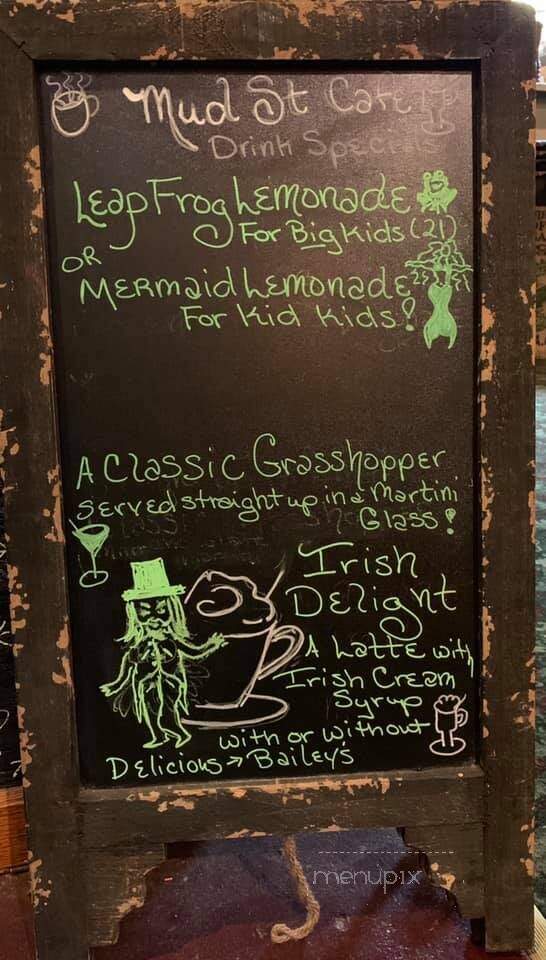 Mud St Cafe
Drink Specials
Leap Frog Lemonade
For Big Kids (21)
OR
Mermaid Lemonade
For Kid Kids!
A Classic Grasshopper
served straight up in a Martini
Glass!
Irish
Delight
A Latte with
Irish Cream
Syrup
with or without
Delicious → Bailey's
menupix